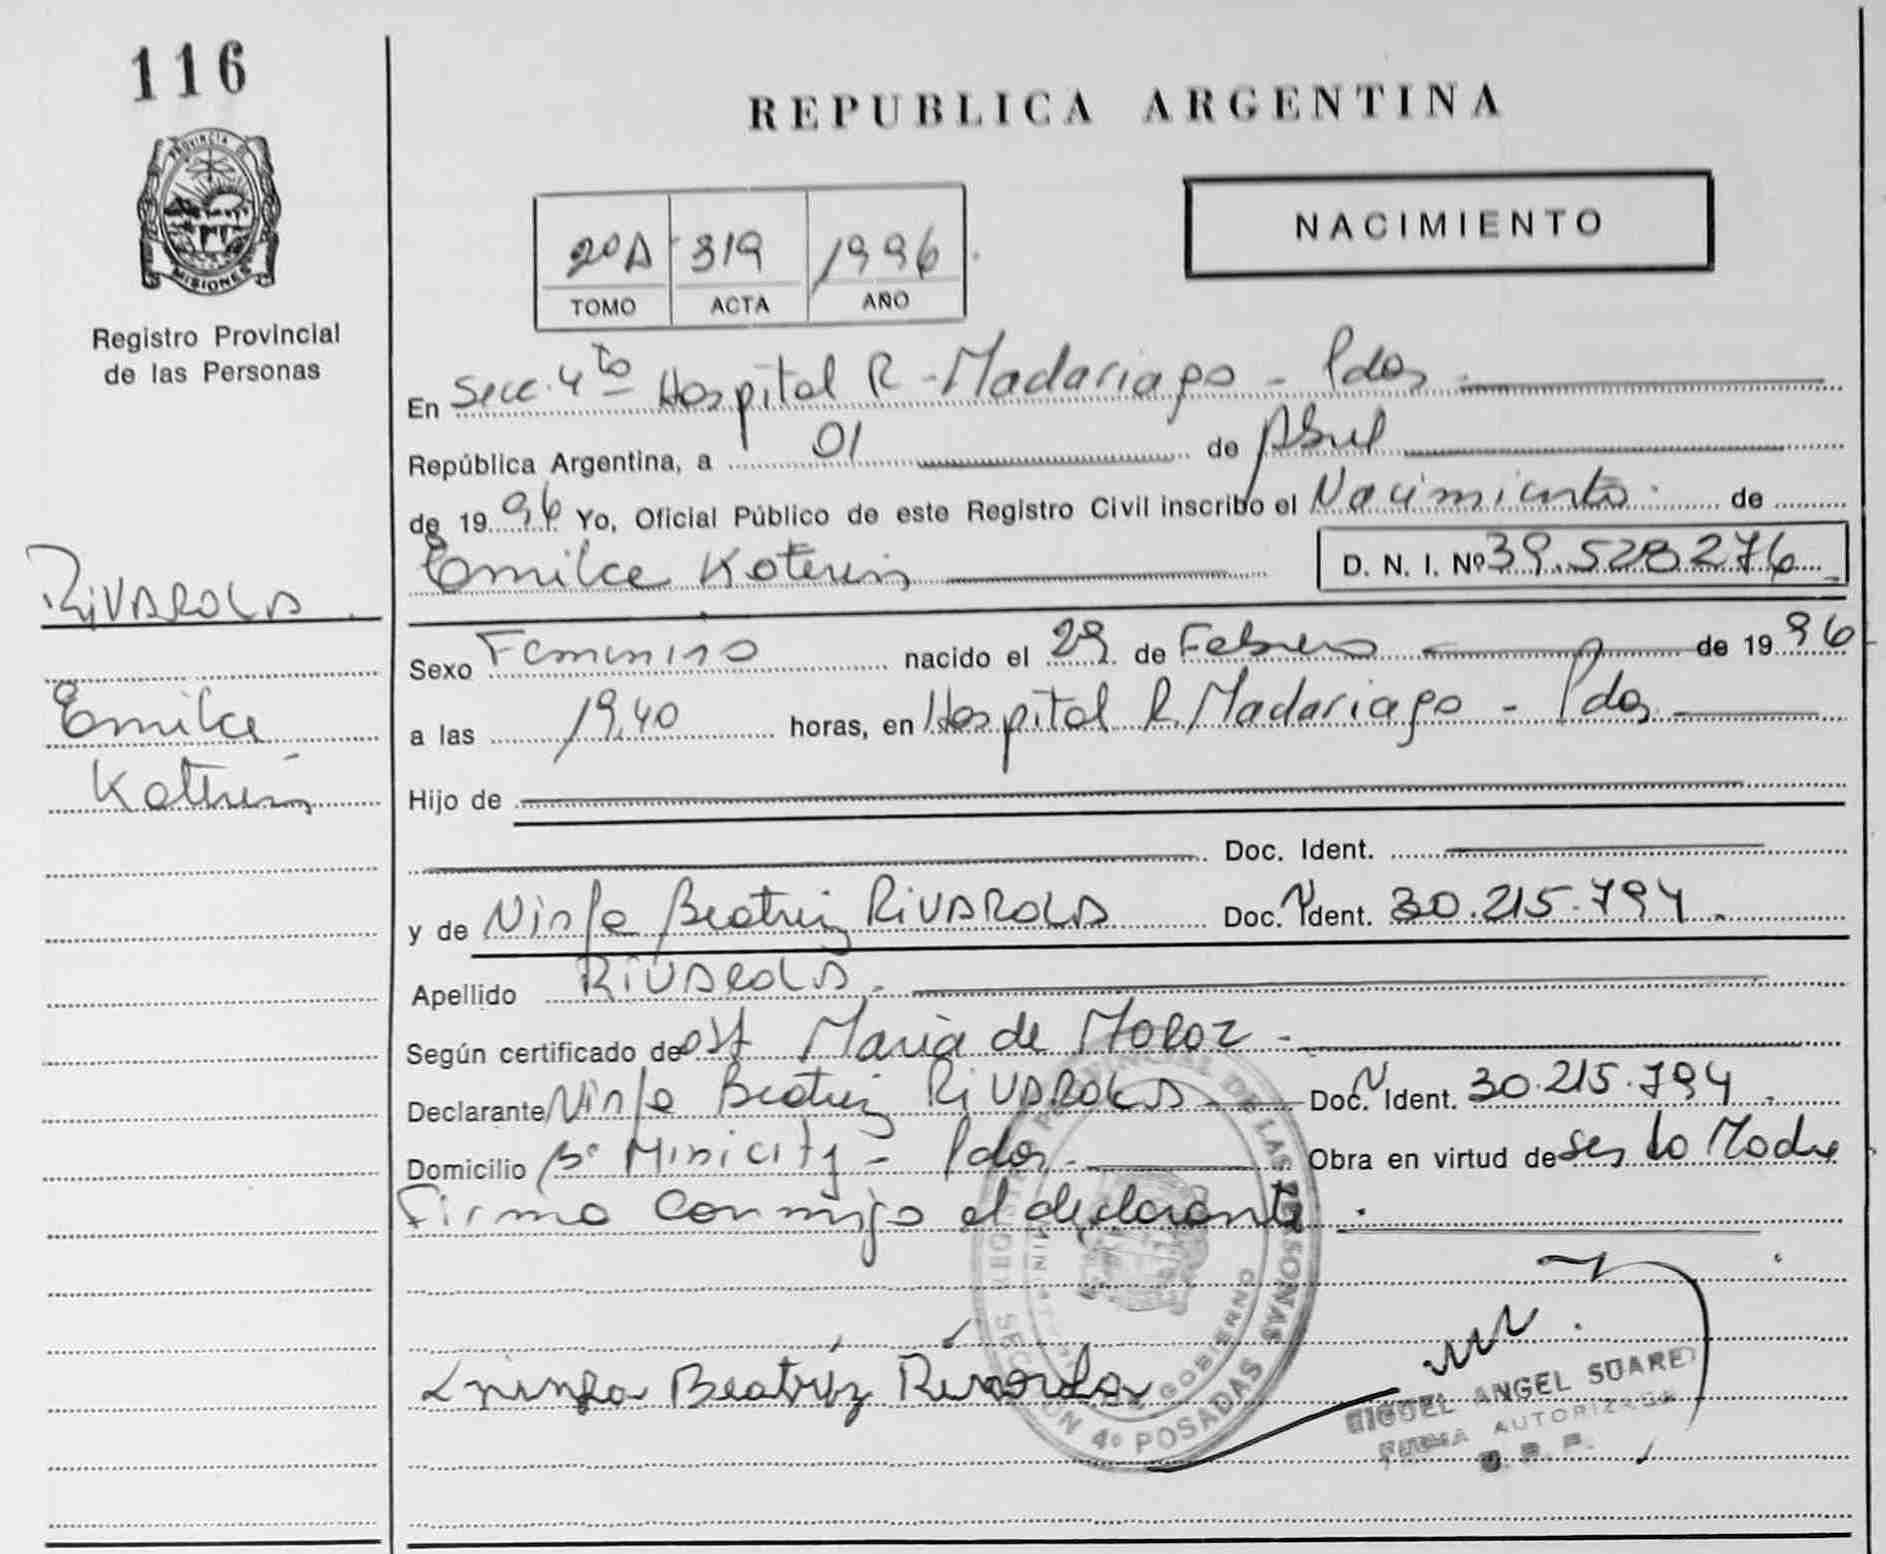 116
PROVINCIA DE
MISIONES
Registro Provincial
de las Personas
RIVAROLA
Emilce
Katerin
REPUBLICA ARGENTINA
NACIMIENTO
20A 319 1996
TOMO ACTA AÑO
En Secc. 4ta Hospital R. Madariaga - Pdas
República Argentina, a 01 de Abril
de 1996 Yo, Oficial Público de este Registro Civil inscribo el Nacimiento de
Emilce Katerin D. N. I. Nº 39.528276
Sexo Femenino nacido el 29 de Febrero de 1996
a las 19,40 horas, en Hospital R. Madariaga - Pdas
Hijo de
Doc. Ident.
y de Ninfa Beatriz RIVAROLA Doc. Ident. 30.215.794
Apellido RIVAROLA
Según certificado de Obst Maria de Moroz
Declarante Ninfa Beatriz RIVAROLA Doc. Ident. 30.215.794
Domicilio Bº Minicity - Pdas Obra en virtud de Ser la Madre
Firma conmigo el declarante
Ninfa Beatriz Rivarola
REGISTRO PROVINCIAL DE LAS PERSONAS
GOBIERNO
SECCION 4º POSADAS
MIGUEL ANGEL SUAREZ
FIRMA AUTORIZADA